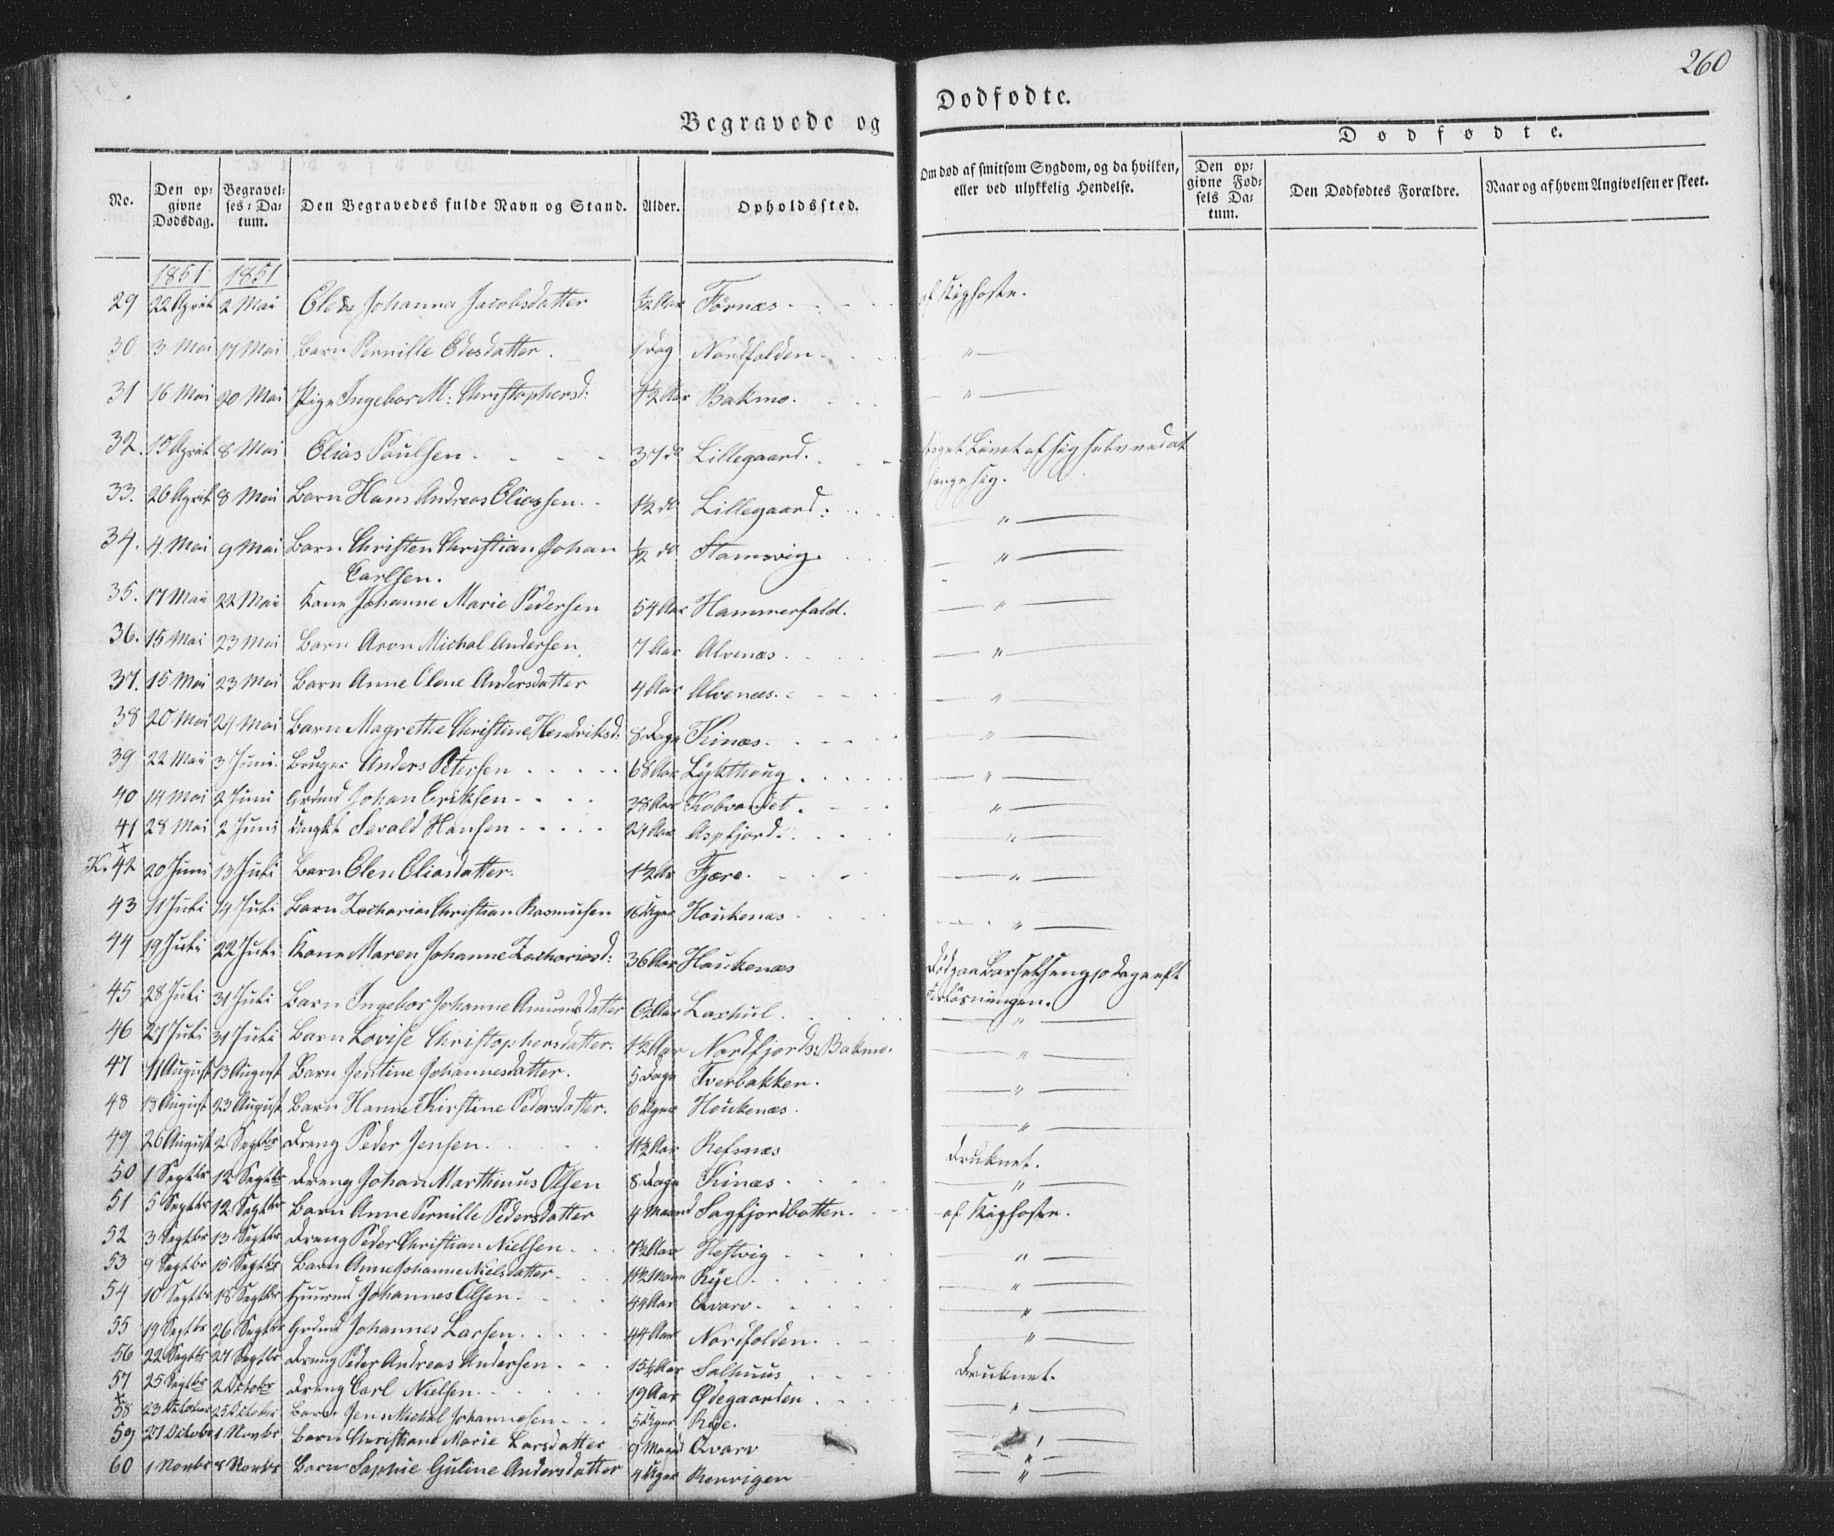 260
Begravede og Dodfodte.
Dodfodte.
No.
Den op=
givne
Dodsdag.
Begravel=
ses=Da=
tum.
Den Begravedes fulde Navn og Stand.
Alder.
Opholdssted.
Om dod af smitsom Sygdom, og da hvilken,
eller ved ulykkelig Hendelse.
Den op=
givne Fod=
sels Da=
tum.
Den Dodfodtes Forældre.
Naar og af hvem Angivelsen er skeet.
1851 1851
29 22 April 2 Mai Johanna Jacobsdatter Aar Fornæs af Kighoste.
30 3 Mai 17 Mai Barn Pernille Edisdatter. 1 Dag Nordfolden "
31 16 Mai 20 Mai Pige Ingebor M: Christophersd: 4½ Aar Bakmo. "
32. 15 April 8 Mai Elias Paulsen 37 do Lillegaard. taget Livet af sig selv ved at
hænge sig.
33. 26 April 8 Mai Barn Hans Andreas Eliassen 1½ do Lillegaard: "
34. 4 Mai 9 Mai Barn Christen Christian Johan ½ do Stamsvig. "
Carlsen.
35. 17 Mai 22 Mai Kone Johanne Marie Pedersen 54 Aar Hammerfald. "
36. 15 Mai 23 Mai Barn Aron Michal Andersen 7 Aar Alvenæs "
37. 15 Mai 23 Mai Barn Anne Olene Andersdatter 4 Aar Alvenæs. "
38 20 Mai 24 Mai Barn Magrethe Christine Hendriksd: 8 Dage Kinæs. "
39 22 Mai 3 Juni Bruger Anders Petersen 68 Aar Løkthoug "
40 14 Mai 2 Juni Grdmd Johan Eriksen 38 Aar Kobvandet. "
41 28 Mai 2 Juni Ungkl Sevald Hansen 24 Aar Aspfjord. "
K. 42 20 Juni 13 Juli Barn Elen Eliasdatter. 1½ Aar Fjære. "
43 11 Juli 14 Juli Barn Zacharias Christian Rasmusen 16 Uger Houkenæs "
44 19 Juli 22 Juli Kone Maren Johanne Zachariasd: 36 Aar Houkenæs Død paa Barselseng 10 Dage eft
Forløsningen.
45 28 Juli 31 Juli Barn Ingebor Johanne Amundsdatter 6½ Aar Laxhul. "
46 27 Juli 31 Juli Barn Lovise Christophersdatter. 1½ Aar Nordfjords: Bakmo. "
47 11 August 13 August Barn Jentine Johannesdatter. 5 Dage Tverbakken. "
48 18 August 23 August Barn Hanne Kirstine Pedersdatter. 6 Uger Houkenæs. "
49 26 August 2 Septbr Dreng Peder Jensen. 11½ Aar Refsnæs Druknet.
50 1 Septbr 12 Septbr Dreng Johan Marthinus Olsen 8 Dage Kinæs. "
51 5 Septbr 12 Septbr Barn Anne Pernille Pedersdatter 4 Maand Sagfjordbotten. af Kighoste.
52 3 Septbr 13 Septbr Dreng Peder Christian Nielsen 7½ Aar Heftvig "
53 9 Septbr 15 Septbr Barn Anne Johanne Nielsdatter 11½ Maan Røe "
54 10 Septbr 18 Septbr Huusmd Johannes Olsen. 44 Aar Qvarv. "
55 19 Septbr 26 Septbr Grdmd Johannes Larsen. 44 Aar Nordfolden. "
56 22 Septbr 27 Septbr Dreng Peder Andreas Andersen 15½ Aar Salhuus Druknet.
57 25 Septbr 2 Octobr Dreng Carl Nielsen 19 Aar Ødegaarden "
58 23 October 25 October Barn Jens Michal Johannesen 5 Uger Røe. "
59 27 October 1 Novbr Barn Christiane Marie Larsdatter 9 Maand Qvarv "
60 1 Novbr 8 Novbr Barn Sophie Guline Andersdatter 4 Uger Renvigen "